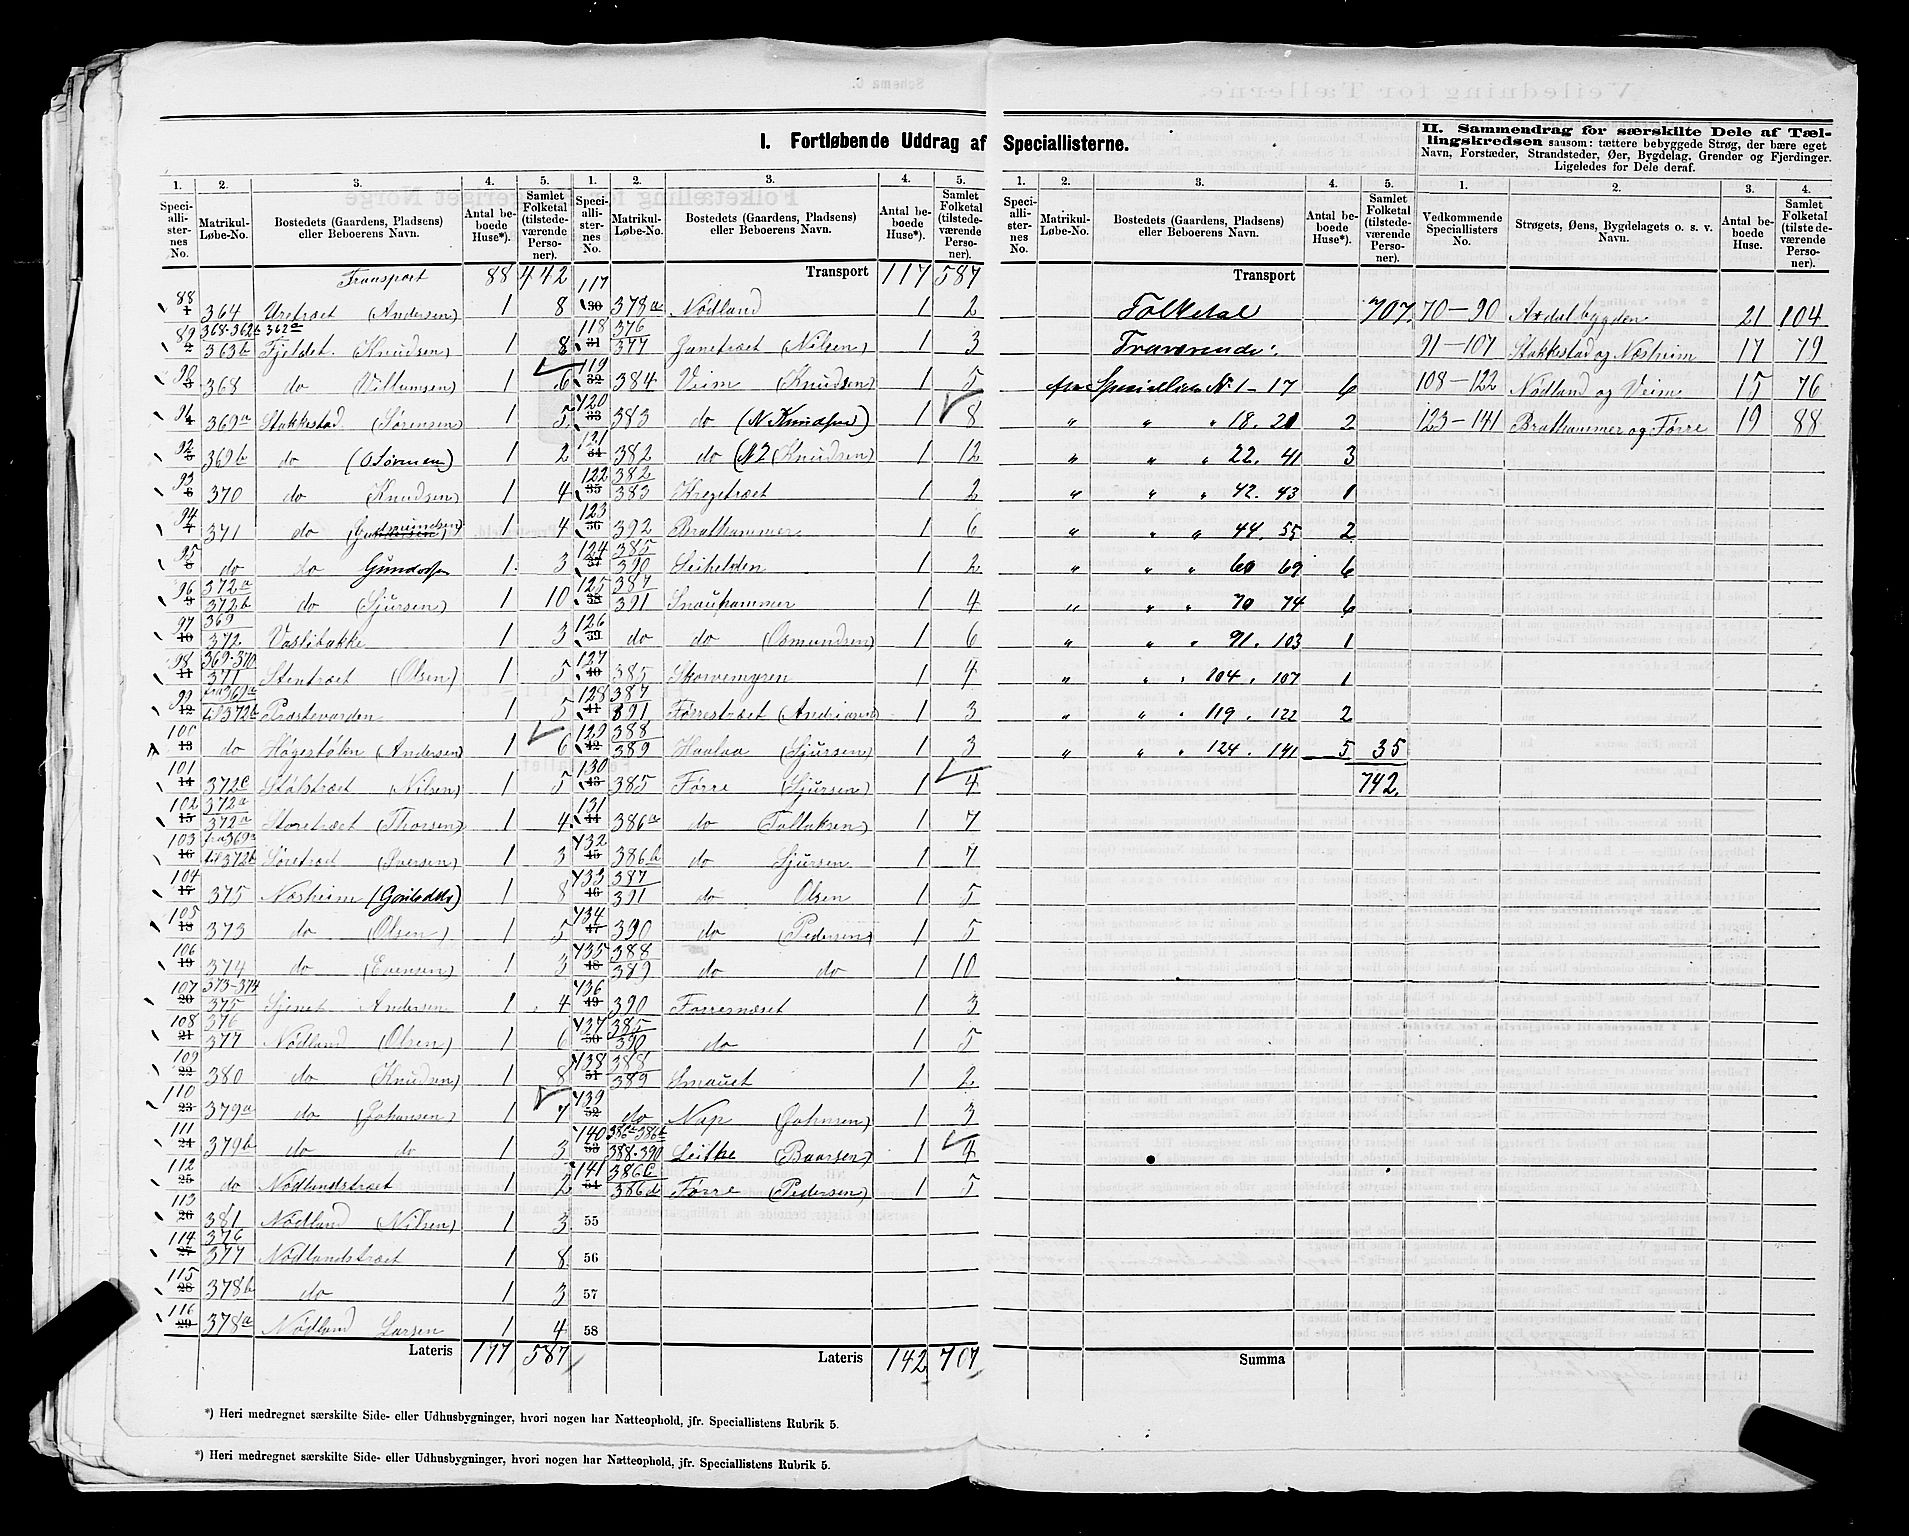 I. Fortløbende Uddrag af Speciallisterne.
II. Sammendrag for særskilte Dele af Tællingskredsen saasom: tættere bebyggede Strøg, der bære eget Navn, Forstæder, Strandsteder, Øer, Bygdelag, Grender og Fjerdinger. Ligeledes for Dele deraf.
1. 2. 3. 4. 5. 1. 2. 3. 4. 5. 1. 2. 3. 4. 5. 1. 2. 3. 4.
Speciallisternes No. Matrikul-Løbe-No. Bostedets (Gaardens, Pladsens) eller Beboerens Navn. Antal beboede Huse*). Samlet Folketal (tilstedeværende Personer).
Speciallisternes No. Matrikul-Løbe-No. Bostedets (Gaardens, Pladsens) eller Beboerens Navn. Antal beboede Huse*). Samlet Folketal (tilstedeværende Personer).
Speciallisternes No. Matrikul-Løbe-No. Bostedets (Gaardens, Pladsens) eller Beboerens Navn. Antal beboede Huse*). Samlet Folketal (tilstedeværende Personer).
Vedkommende Speciallisters No. Strøgets, Øens, Bygdelagets o. s. v. Navn. Antal beboede Huse. Samlet Folketal (tilstedeværende Personer).
Transport 88 442
88 364 Uretræet (Andersen) 1 8
89 368-362b 362a 363b Fjeldet (Knudsen) 1 8
90 368 do 1 6
91 369a Stakkestad (Sørensen) 1 5
92 369b do 1 2
93 370 do (Knudsen) 1 4
94 371 do 1 4
95 do do 1 3
96 372a 372b do (Sjursen) 1 10
97 369 372 Vaslibakke 1 3
98 369-370 371 Stentræet (Olsen) 1 5
99 fra 369a til 372b Præstevarden 1 5
100 do Høgestølen (Andersen) 1 6
101 372c Stølstræet (Nilsen) 1 5
102 372a 372a Storetræet (Thorsen) 1 4
103 til 372b Søretræet (Iversen) 1 3
104 375 Næsheim 1 8
105 373 do (Olsen) 1 5
106 374 do (Evensen) 1 3
107 373-374 375 Andersen 1 4
108 376 377 Nødland (Olsen) 1 6
109 380 do (Knudsen) 1 8
110 379a do (Johansen) 1 7
111 379b do do 1 3
112 do Nødlandstræet 1 2
113 381 Nødland (Nilsen) 1 3
114 376 377 Nødlandstræet 1 8
115 378b do 1 3
116 378a Nødland Larsen 1 4
Lateris 117 587
Transport 117 587
117 378a Nødland 1 2
118 376 377 (Nilsen) 1 3
119 384 Veim (Knudsen) 1 5
120 383 do (N. Knudsen) 1 8
121 382 do (N 2 Knudsen) 1 12
122 382 383 1 2
123 392 Brathammer 1 6
124 385 390 1 2
125 387 391 Snauhammer 1 4
126 do do (Osmundsen) 1 6
127 385 Skorvemyren 1 4
128 387 391 Førrestræet 1 3
129 388 389 Haalaa (Sjursen) 1 3
130 385 Førre (Sjursen) 1 4
131 386a do (Tollaksen) 1 7
132 386b do Sjursen 1 7
133 387 391 do Olsen 1 5
134 390 do (Pedersen) 1 5
135 388 389 do do 1 10
136 390 Førresnæset 1 3
137 385 390 do 1 5
138 388 389 Smauet 1 2
139 do Nap (Johnsen) 1 3
140 386a-386b 388-390 (Baarsen) 1 4
141 386c 386d Førre (Pedersen) 1 5
55
56
57
58
Lateris 142 707
Transport
Folketal 707
Fraværende:
fra Specialliste Nr 1-17 6
" " " 18. 21 2
" " " 22. 41 3
" " " 42. 43 1
" " " 44. 55 2
" " " 60 69 6
" " " 70 74 6
" " " 91. 103 1
" " " 104. 107 1
" " " 119. 122 2
" " " 124. 141 5 35
742.
Summa
70-90 21 104
91-107 Stakkestad og Næsheim 17 79
108-122 Nødland og Veim 15 76
123-141 Brathammer og Førre 19 88
*) Heri medregnet særskilte Side- eller Udhusbygninger, hvori nogen har Natteophold, jfr. Speciallistens Rubrik 5.
*) Heri medregnet særskilte Side- eller Udhusbygninger, hvori nogen har Natteophold, jfr. Speciallistens Rubrik 5.